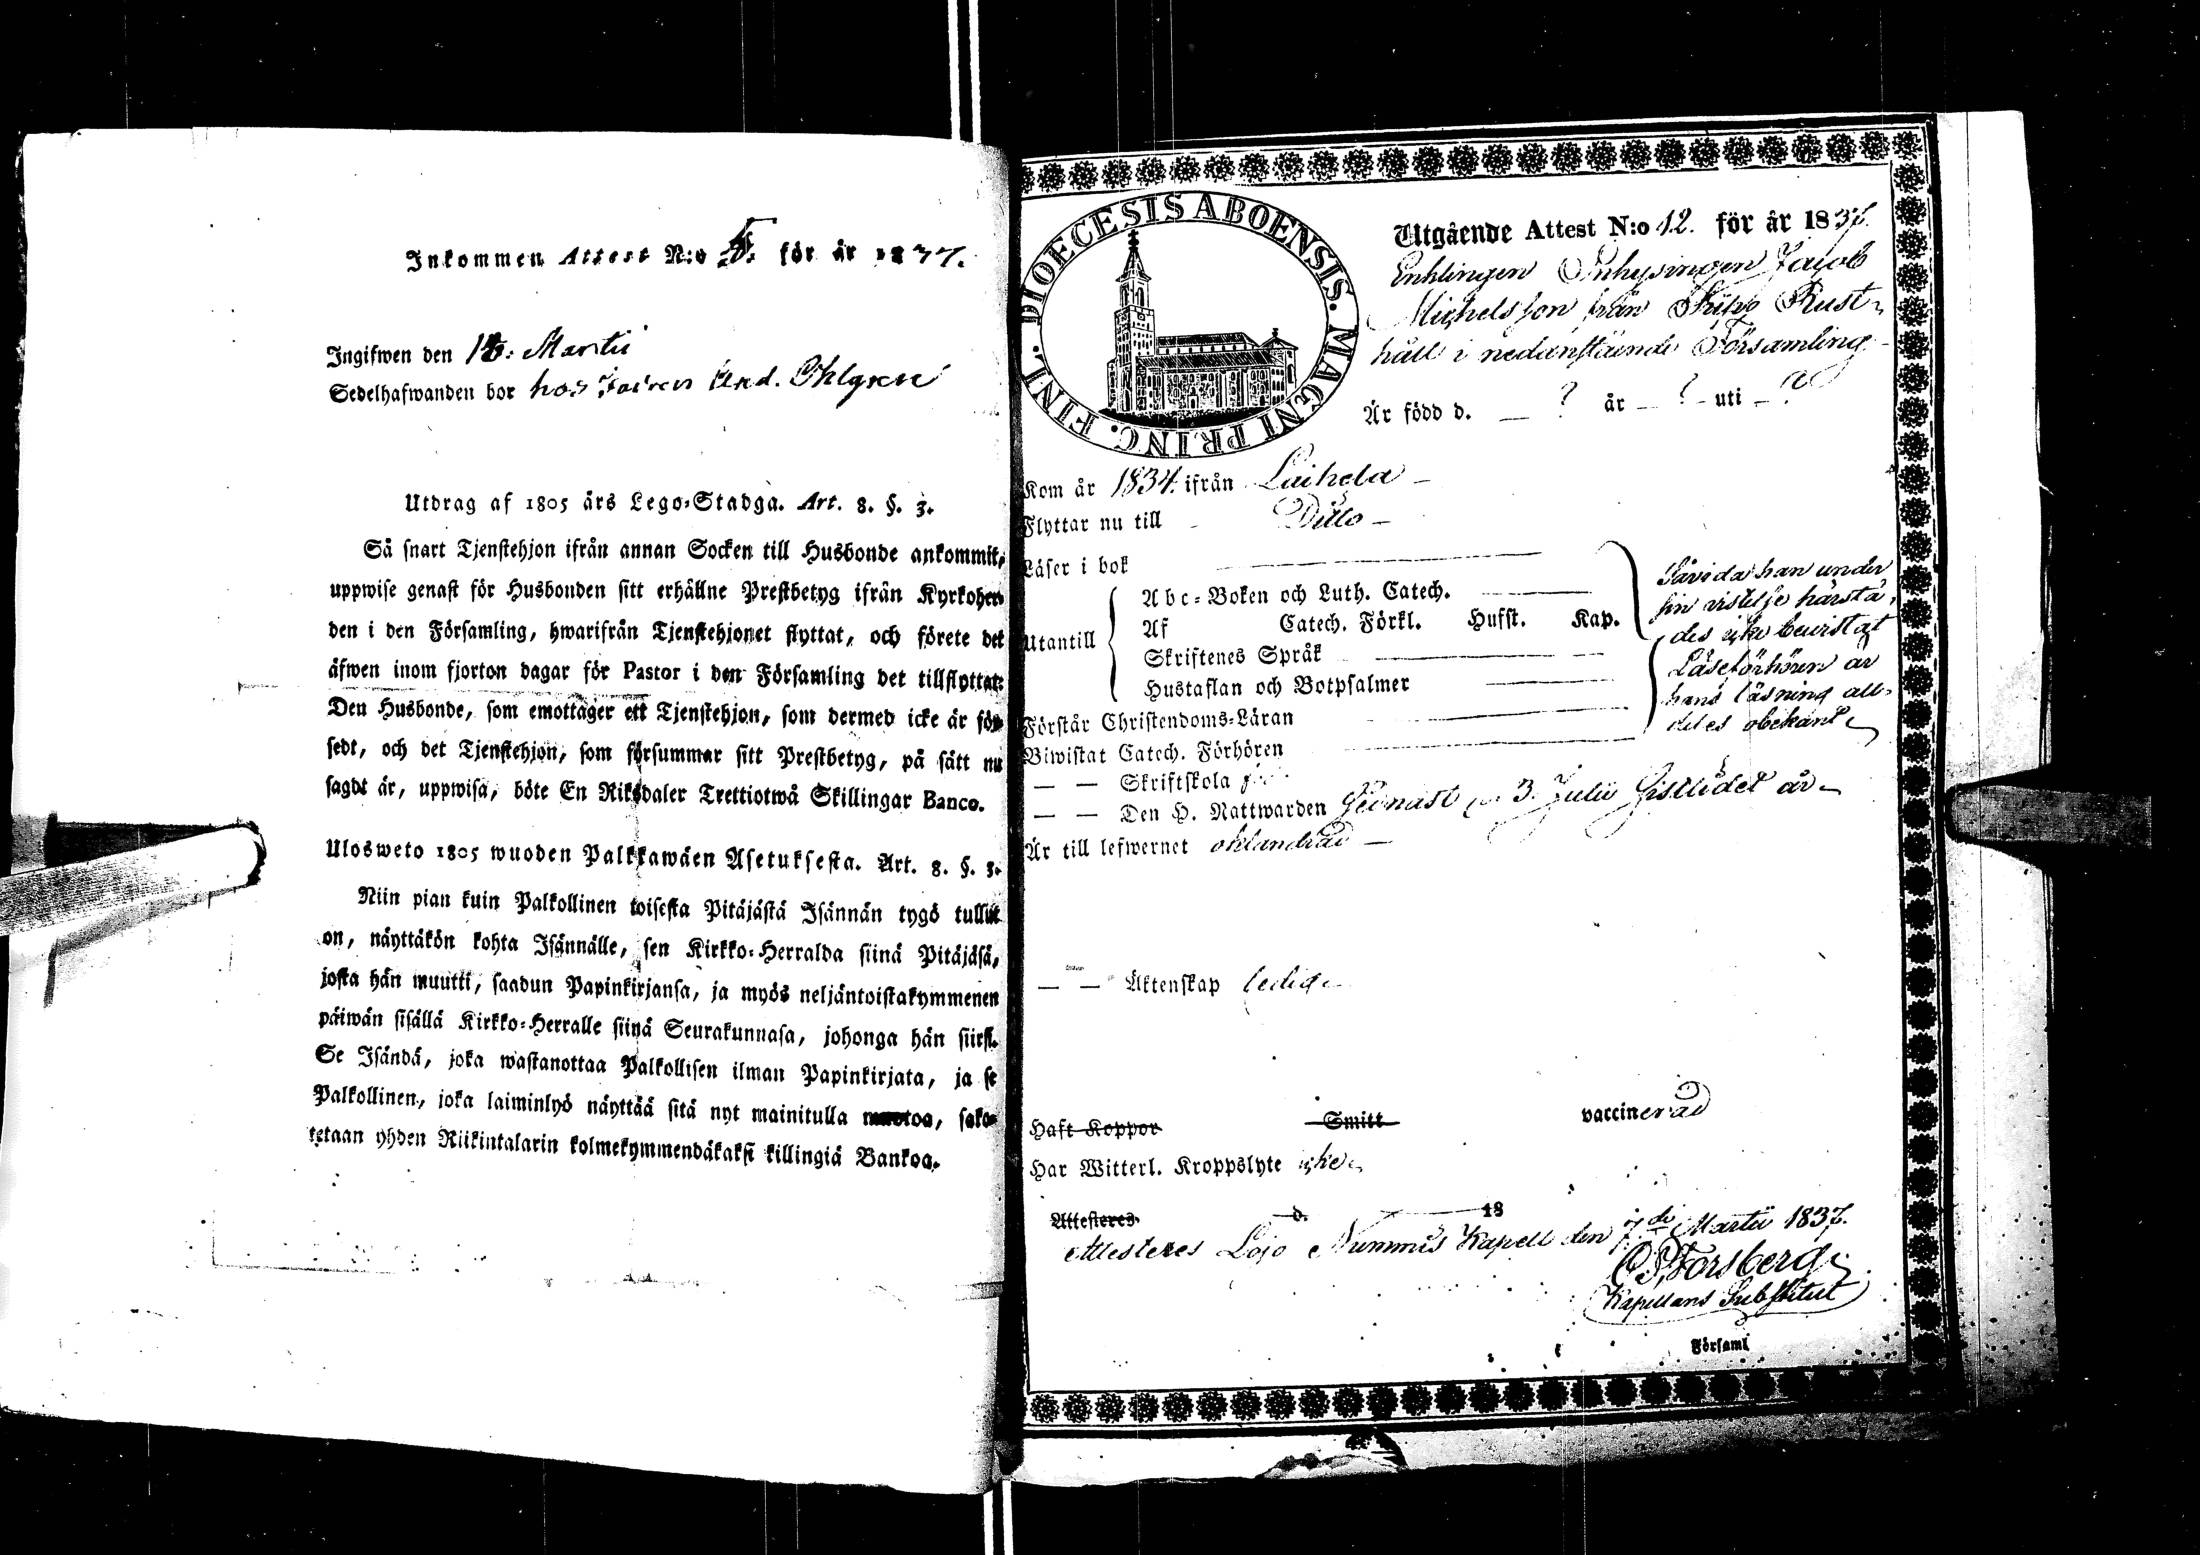 Inkommen Attest N:o 5. för år 1837.
Ingifwen den 15. Martii
Sedelhafwanden bor hos And. Ohlgren
Utdrag af 1805 års Lego-Stadga. Art. 8. §. 3.
Så snart Tjenstehjon ifrån annan Socken till Husbonde ankommit,
uppwise genast för Husbonden sitt erhållne Prestbetyg ifrån Kyrkoher-
den i den Församling, hwarifrån Tjenstehjonet flyttat, och förete det
äfwen inom fjorton dagar för Pastor i den Församling det tillflyttat:
Den Husbonde, som emottager ett Tjenstehjon, som dermed icke är för-
sedt, och det Tjenstehjon, som försummar sitt Prestbetyg, på sätt nu
sagdt är, uppwisa, böte En Riksdaler Trettiotwå Skillingar Banco.
Ulosweto 1805 wuoden Palkkawäen Asetuksesta. Art. 8. §. 3.
Niin pian kuin Palkollinen toisesta Pitäjästä Isännän tygö tullut
on, näyttäkön kohta Isännälle, sen Kirkko-Herralda siinä Pitäjäsä,
josta hän muutti, saadun Papinkirjansa, ja myös neljäntoistakymmenen
päiwän sisällä Kirkko-Herralle siinä Seurakunnasa, johonga hän siirsi.
Se Isändä, joka wastanottaa Palkollisen ilman Papinkirjata, ja se
Palkollinen, joka laiminlyö näyttää sitä nyt mainitulla muotoa, sako-
tetaan yhden Riikintalarin kolmekymmendäkaksi killingiä Bankoa.
DIOECESIS ABOENSIS. MAGNI PRINC. FINL.
Utgående Attest N:o 12. för år 1837.
Enhlingen Inhysingen Jacob
Michelsson från Rust-
håll i nedanstående Församling
Är född d. — ? år — ? — uti — ?
Kom år 1834. ifrån Laihela —
Flyttar nu till — Ditto —
Läser i bok
Utantill
Abc-Boken och Luth. Catech.
Af Catech. Förkl. Hufst. Kap.
Skriftenes Språk
Hustaflan och Botpsalmer
Förstår Christendoms-Läran
Såvida han under
sin vistelse härstä-
des icke bevistat
Läseförhören är
hans läsning all-
deles obekant
Biwistat Catech. Förhören
— — Skriftskola
— — Den H. Nattwarden Senast 3 Julii Sistlidet år
Är till lefwernet oklandrad —
— — Äktenskap ledig
Haft Koppor Smitt vaccinerad
Har Witterl. Kroppslyte icke
Attesteres d. 18
Attesteres Lojo Nummis Kapell den 7de Martii 1837.
C. J. Forsberg
Kapellans Substitut
Församl